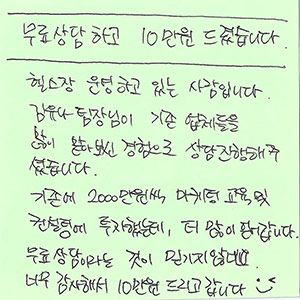 무료상담하고 10만원 드렸습니다.
헬스장 운영하고 있는 사람입니다.
김유나 팀장님이 기존 업체들을
많이 봐보신 경험으로 상담진행해주
셨습니다.
기존에 2000만원씩 마케팅 교육 및
컨설팅에 투자했는데, 더 많이 팔아갑니다.
무료상담이라는 것이 믿기지 않네요
너무 감사해서 10만원 드리고 갑니다